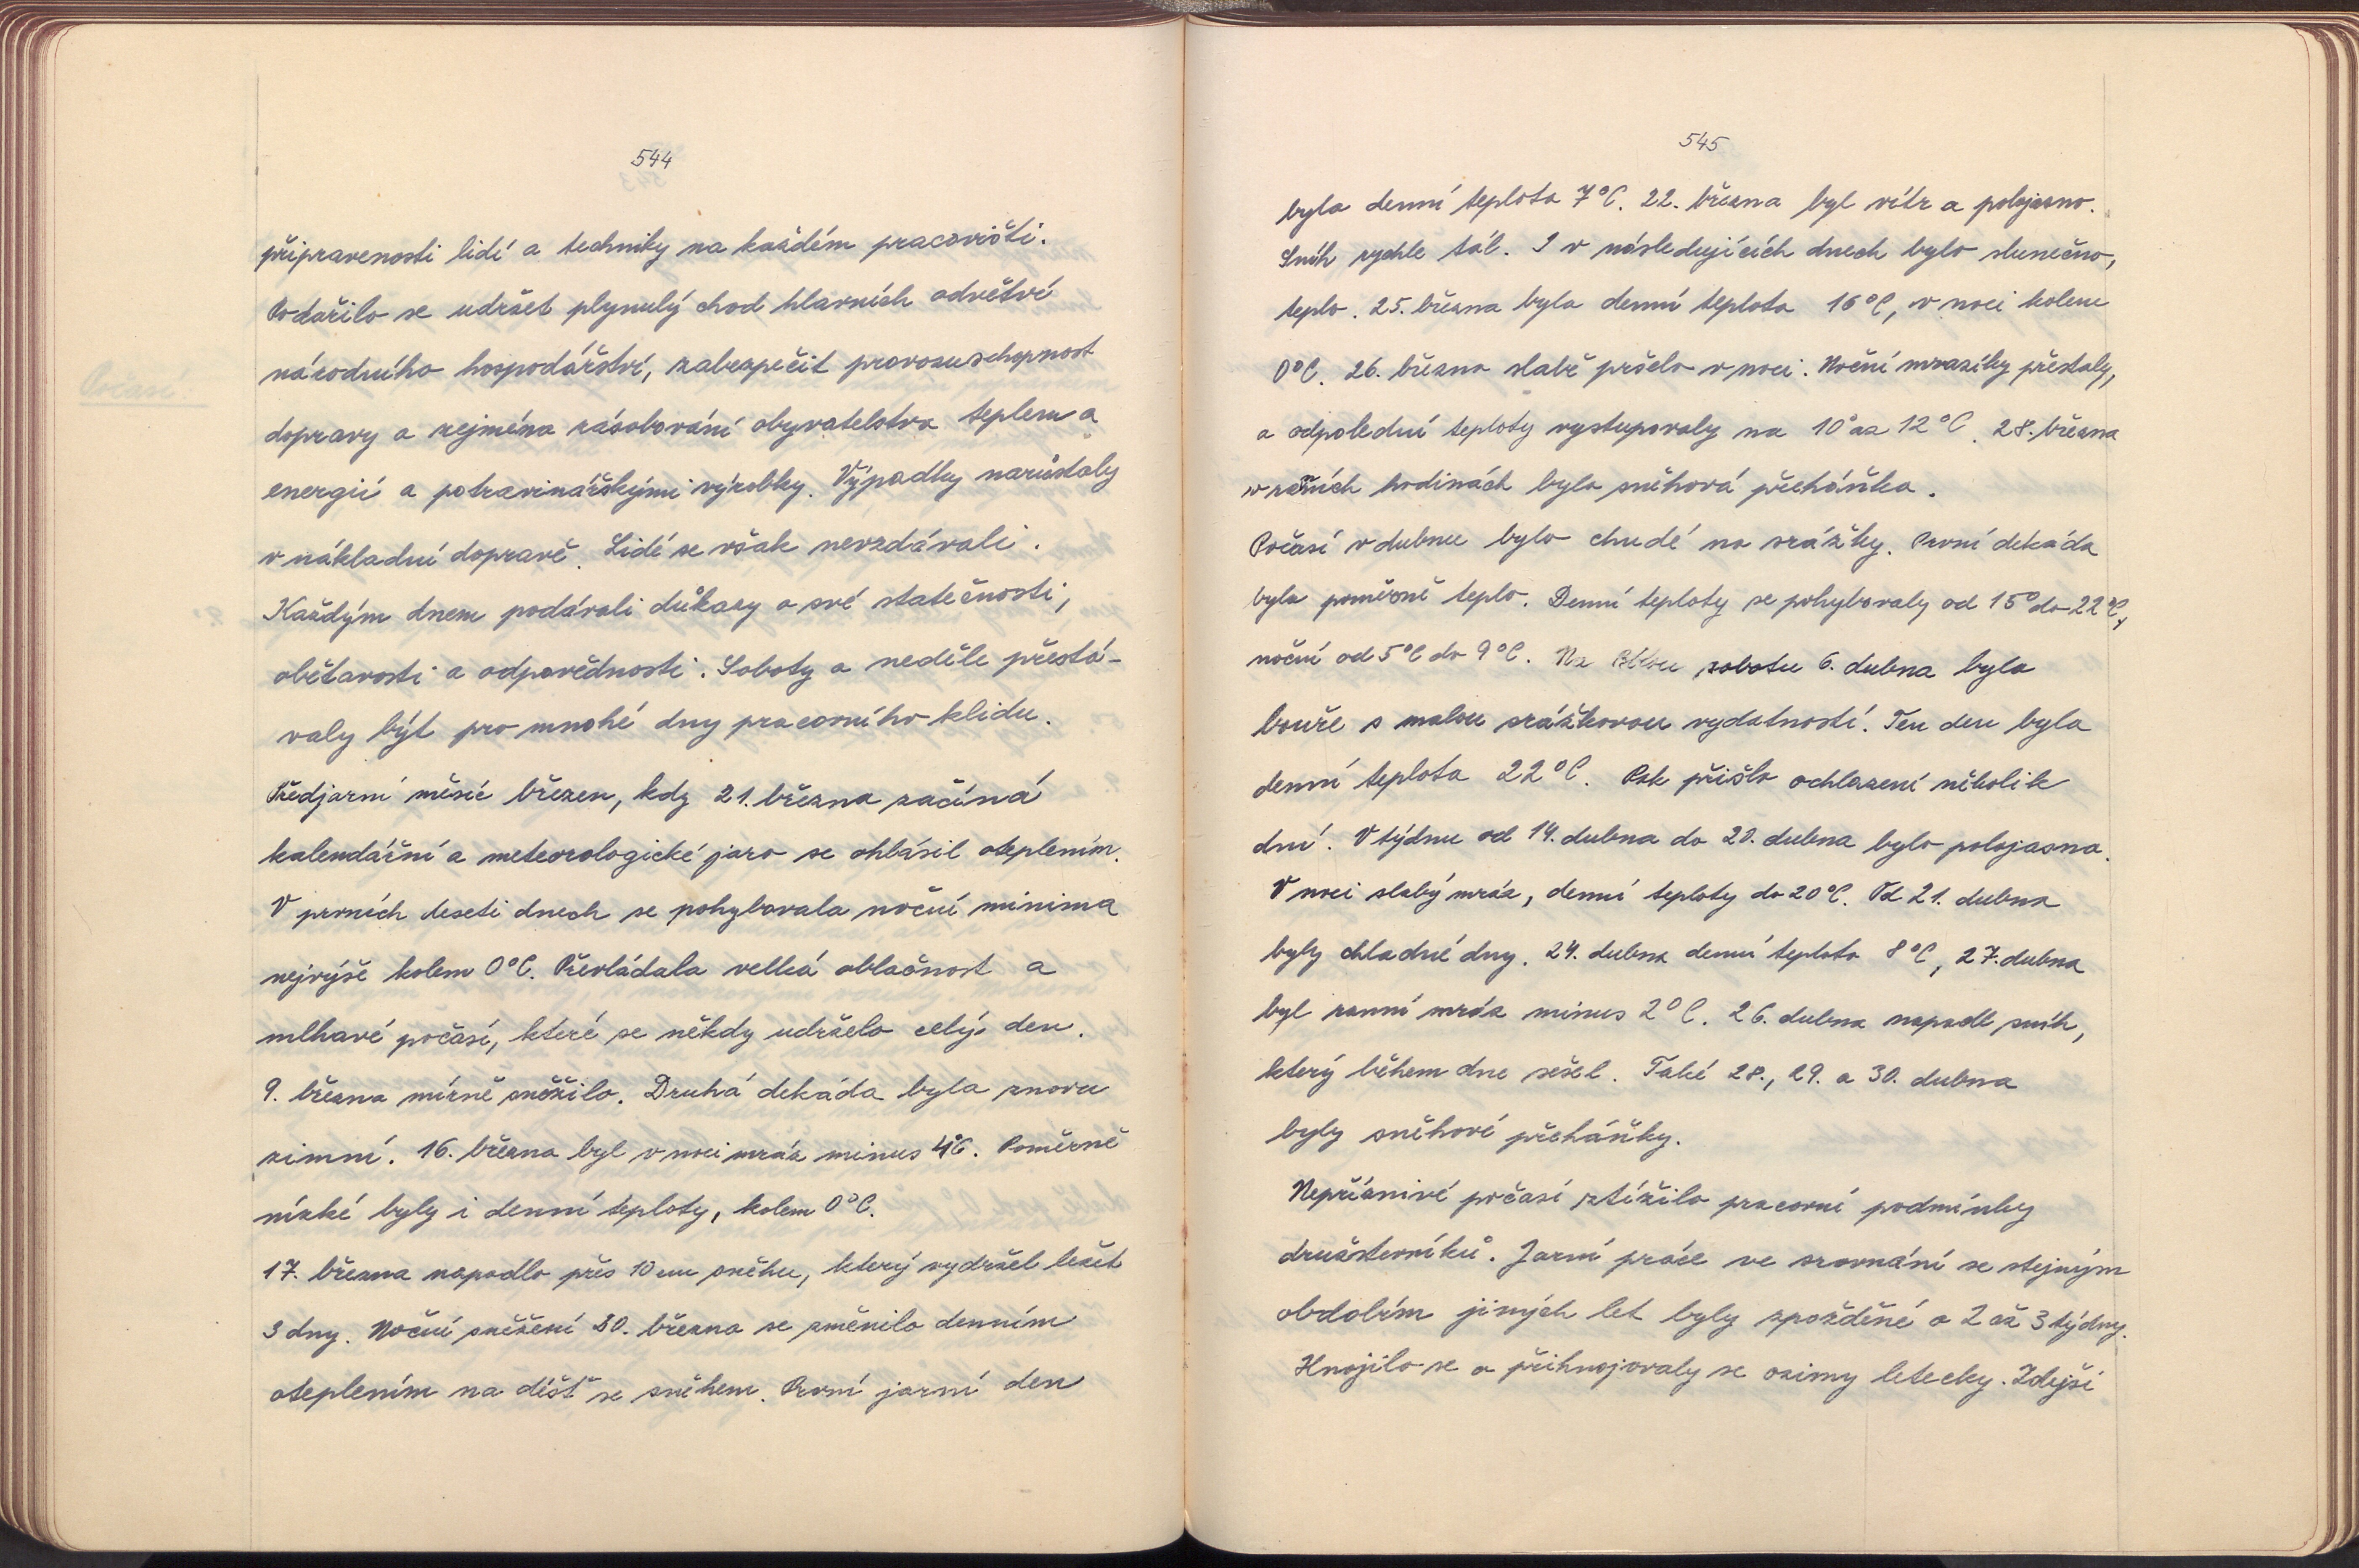 544
připravenosti lidí a techniky na každém pracovišti.
Podařilo se udržet plynulý chod hlavních odvětví
národního hospodářství, zabezpečit provozuschopnost
dopravy a zejména zásobování obyvatelstva teplem a
energií a potravinářskými výrobky. Výpadky narůstaly
v nákladní dopravě. Lidé se však nevzdávali.
Každým dnem podávali důkazy o své statečnosti,
obětavosti a odpovědnosti. Soboty a neděle přestá-
valy být pro mnohé dny pracovního klidu.
Předjarní měsíc březen, kdy 21. března začíná
kalendářní a meteorologické jaro se ohlásil oteplením.
V prvních deseti dnech se pohybovala noční minima
nejvýše kolem 0°C. Převládala velká oblačnost a
mlhavé počasí, které se někdy udrželo celý den.
9. března mírně sněžilo. Druhá dekáda byla znovu
zimní. 16. března byl v noci mráz minus 4°C. Poměrně
nízké byly i denní teploty, kolem 0°C.
17. března napadlo přes 10 cm sněhu, který vydržel ležet
3 dny. Noční sněžení 20. března se změnilo denním
oteplením na déšť se sněhem. První jarní den
Počasí.
545
byla denní teplota 7°C. 22. března byl vítr a polojasno.
Sníh rychle tál. I v následujících dnech bylo slunečno,
teplo. 25. března byla denní teplota 16°C, v noci kolem
0°C. 26. března slabě pršelo v noci. Noční mrazíky přestaly,
a odpolední teploty vystupovaly na 10° až 12°C. 28. března
v ranních hodinách byla sněhová přeháňka.
Počasí v dubnu bylo chudé na srážky. První dekáda
byla poměrně teplo. Denní teploty se pohybovaly od 15° do 22°C,
noční od 5°C do 9°C. Na Bílou sobotu 6. dubna byla
bouře s malou srážkovou vydatností. Ten den byla
denní teplota 22°C. Pak přišlo ochlazení několik
dní. V týdnu od 14. dubna do 20. dubna bylo polojasno.
V noci slabý mráz, denní teploty do 20°C. Od 21. dubna
byly chladné dny. 24. dubna denní teplota 8°C, 27. dubna
byl ranní mráz minus 2°C. 26. dubna napadl sníh,
který během dne sešel. Také 28., 29. a 30. dubna
byly sněhové přeháňky.
Nepříznivé počasí ztížilo pracovní podmínky
družstevníků. Jarní práce ve srovnání se stejným
obdobím jiných let byly zpožděné o 2 až 3 týdny.
Hnojilo se a přihnojovaly se ozimy letecky. Zdejší